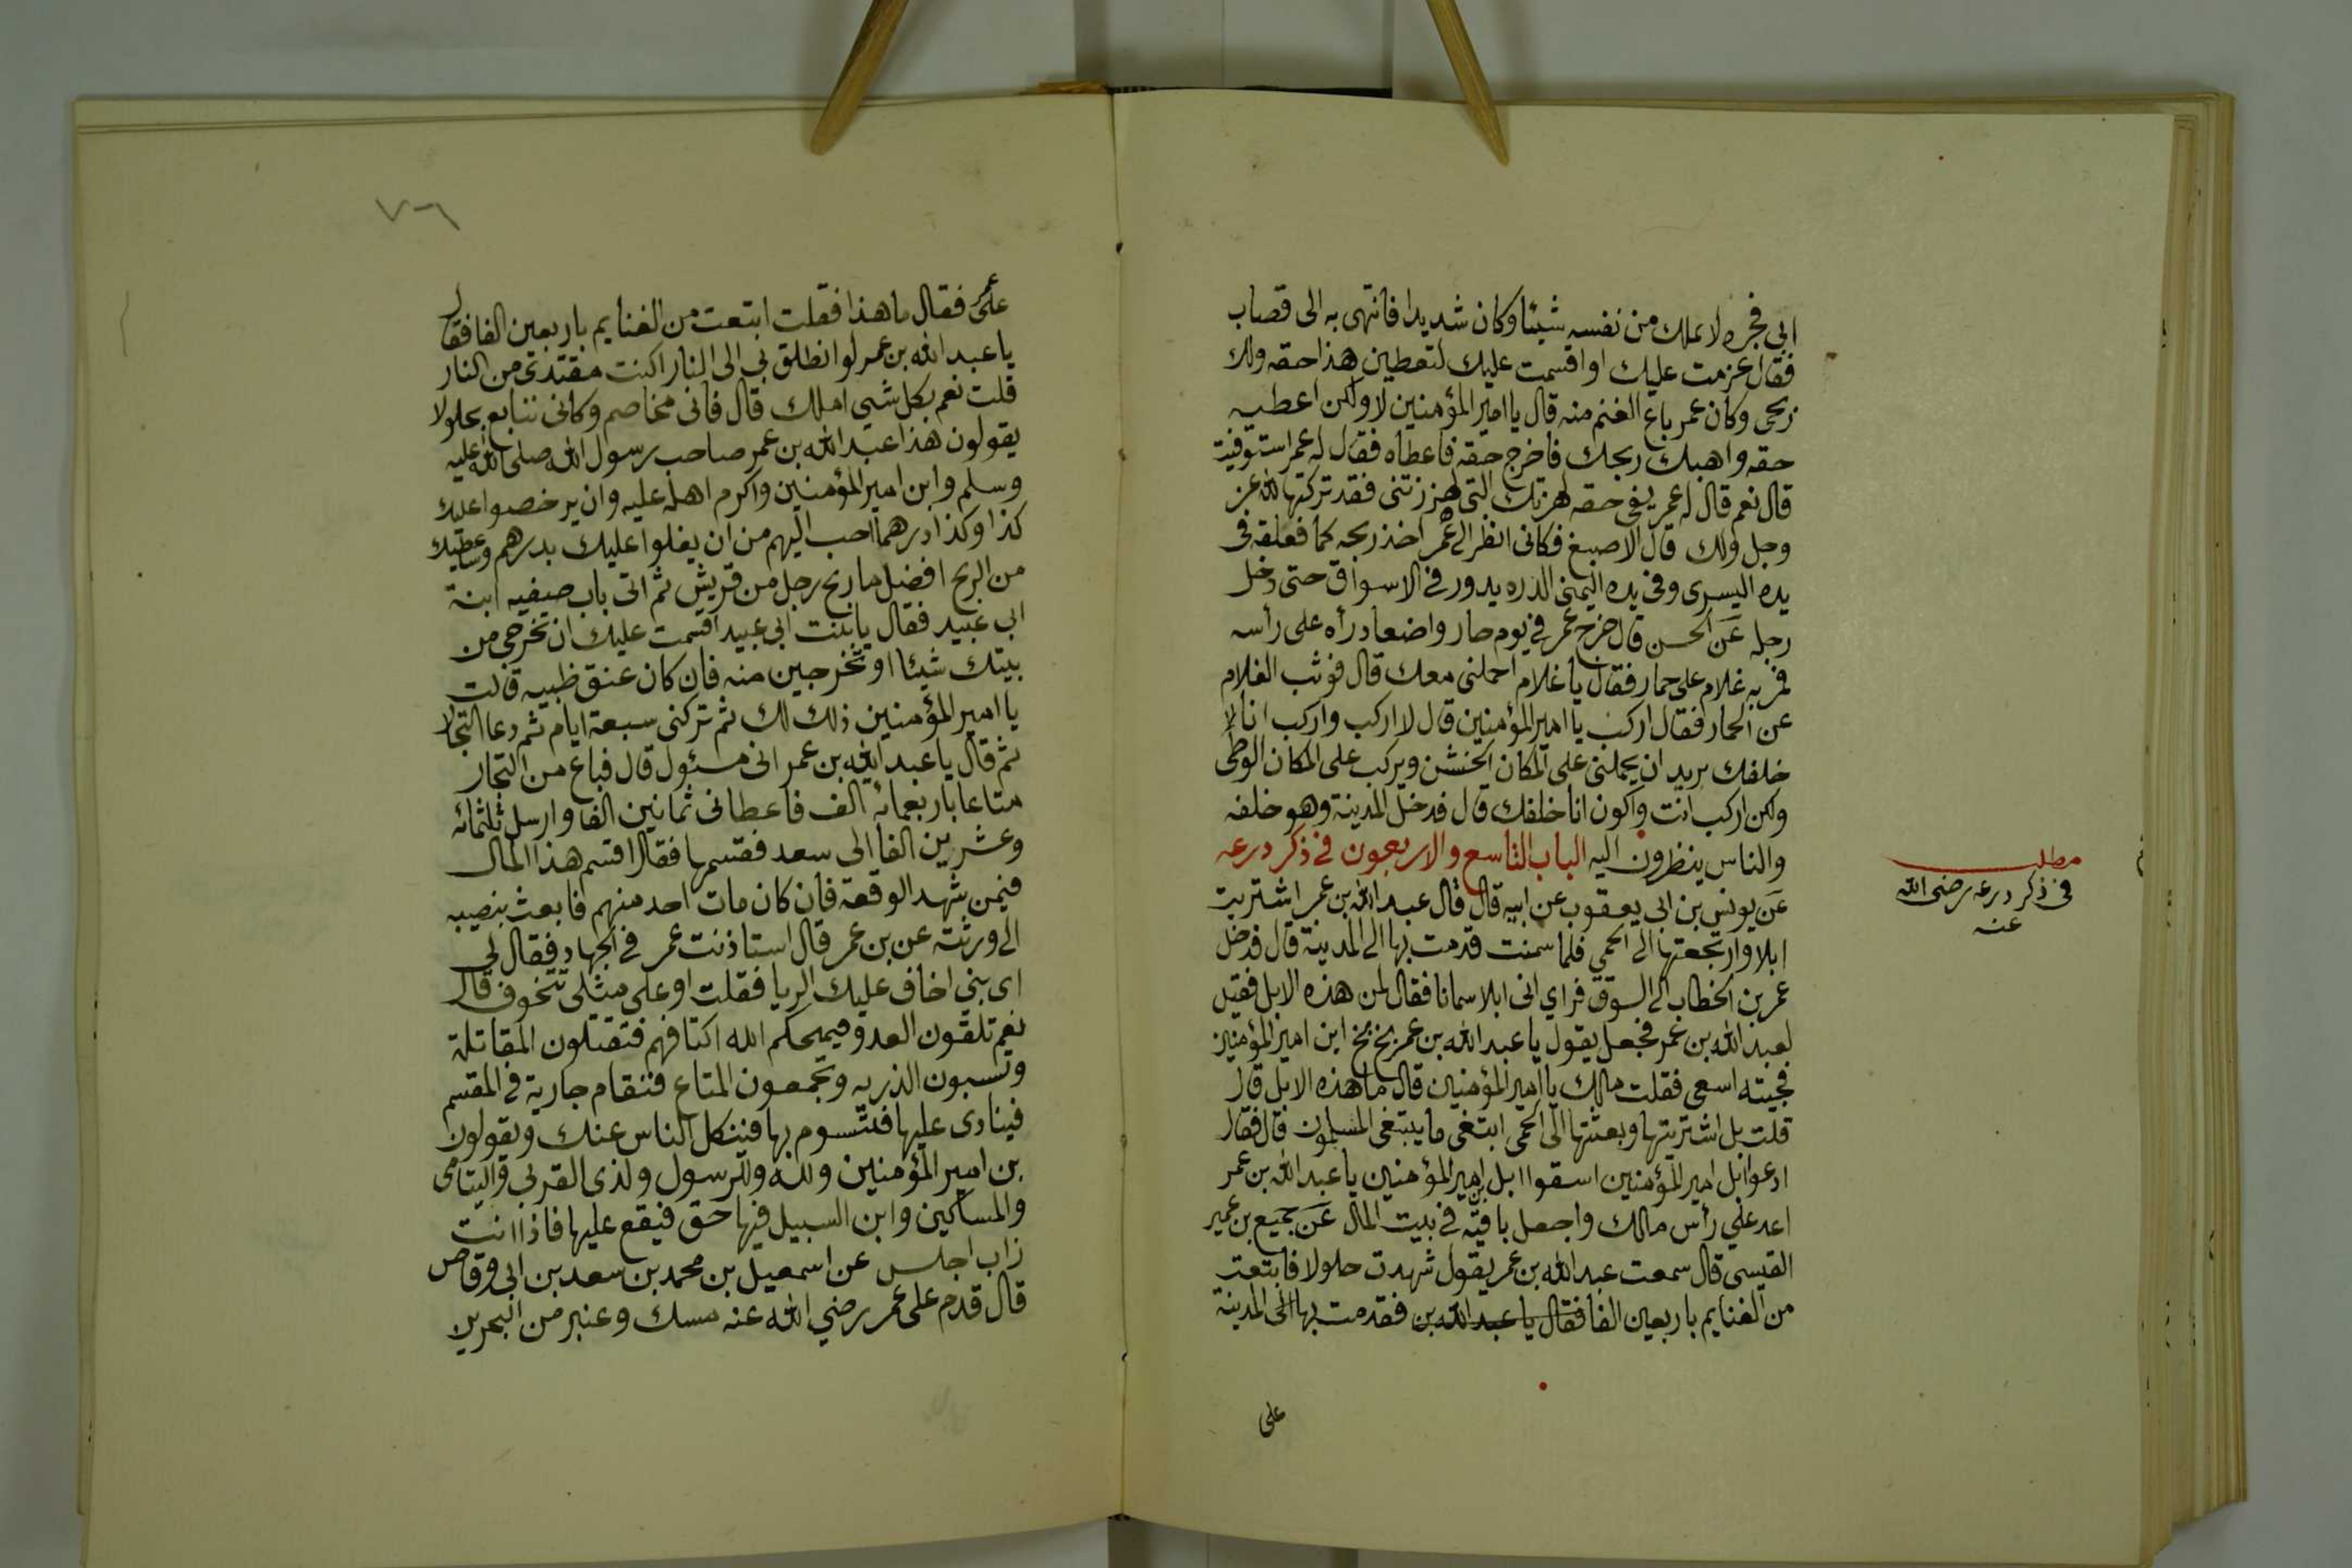 ابي فجره لا يملك من نفسه شيئا وكان شديدا فانتهى به الى قصاب
فقال عزمت عليك او اقسمت عليك لتعطين هذا حقه ولك
ربحى وكان عمر باع الغنم منه قال يا امير المؤمنين لا ولكن اعطيه
حقه واهبك ربحك فاخرج حقه فاعطاه فقال له عمر استوفيت
قال نعم قال له عمر بقى حقه لهزتك التى لهززتنى فقد تركتها لله عز
وجل ولك قال الاصبغ فكانى انظر الى عمر اخذ ربحه كما فعلقه فى
يده اليسرى وفى يده اليمنى الدره يدور في الاسواق حتى دخل
رجله عن الحسن قال خرج عمر في يوم حار واضعا رداه على رأسه
فمر به غلام على حمار فقال يا غلام احملنى معك قال فوثب الغلام
عن الحمار فقال اركب يا امير المؤمنين قال لا اركب واركب انا
خلفك يريد ان يحملنى على المكان الخشن ويركب على المكان الوطى
ولكن اركب انت واكون انا خلفك قال فدخل المدينة وهو خلفه
والناس ينظرون اليه الباب التاسع والاربعون في ذكر درعه
عن يونس بن ابى يعقوب عن ابيه قال قال عبد الله بن عمر اشتريت
ابلا وارتجعتها الى الحمى فلما سمنت قدمت بها الى المدينة قال فدخل
عمر بن الخطاب الى السوق فراي انى ابلا سمانا فقال لمن هذه الابل فقيل
لعبد الله بن عمر فجعل يقول يا عبد الله بن عمر بخ بخ ابن امير المؤمنين
فجيته اسعى فقلت مالك يا امير المؤمنين قال ما هذه الابل قال
قلت بل اشتريتها وبعثتها الى الحمى ابتغى ما يبتغى المسلمون قال فقال
ادعوا ابل امير المؤمنين اسقوا ابل بن امير المؤمنين يا عبد الله بن عمر
اعد علي رأس مالك واجعل باقيه في بيت المال عن جميع بن عمير
القيسى قال سمعت عبد الله بن عمر يقول شهدت حلولا فابتعت
من الغنايم باربعين الفا فقال يا عبد الله بن فقدمت بها الى المدينة
على
مطلب
فى ذكر درعه رضى الله
عنه
٧٠٦
على عمر فقال ما هذا فقلت ابتعت من الغنايم باربعين الفا فقال
يا عبد الله بن عمر لو انطلق بي الى النار اكنت مفتدى من النار
قلت نعم بكل شيى املك قال فانى مخاصم وكانى نتبايع بحلولا
يقولون هذا عبد الله بن عمر صاحب رسول الله صلى الله عليه
وسلم وابن امير المؤمنين واكرم اهله عليه وان يرخصوا عليك
كذا وكذا درهما احب اليهم من ان يغلوا عليك بدرهم وساعطيك
من الربح افضل ما ربح رجل من قريش ثم اتى باب صيفيه ابنة
ابى عبيد فقال يا بنت ابى عبيد اقسمت عليك ان تخرجى من
بيتك شيئا او تخرجين منه فان كان عنق ظبيه قالت
يا امير المؤمنين ذلك لك ثم تركنى سبعة ايام ثم دعا التجار
ثم قال يا عبد الله بن عمر انى مسئول قال فباع من التجار
متاعا باربعمائه الف فاعطانى ثمانين الفا وارسل ثلثمائه
وعشرين الفا الى سعد فقسمها فقال اقسم هذا المال
فيمن شهد الوقعة فان كان مات احد منهم فابعث بنصيبه
الى ورثته عن بن عمر قال استاذنت عمر في الجهاد فقال لي
اى بني اخاف عليك الربا فقلت او على مثلى تتخوف قال
نعم تلقون العدو فيمحكم الله اكتافهم فتقتلون المقاتلة
وتسبون الذريه وتجمعون المتاع فتقام جارية في المقسم
فينادى عليها فتسوم بها فنكل الناس عنك ويقولون
بن امير المؤمنين ولله وللرسول ولذى القربى واليتامى
والمساكين وابن السبيل فيها حق فيقع عليها فاذا انت
زاب اجلس عن اسمعيل بن محمد بن سعد بن ابى وقاص
قال قدم على عمر رضي الله عنه مسك وعنبر من البحرين